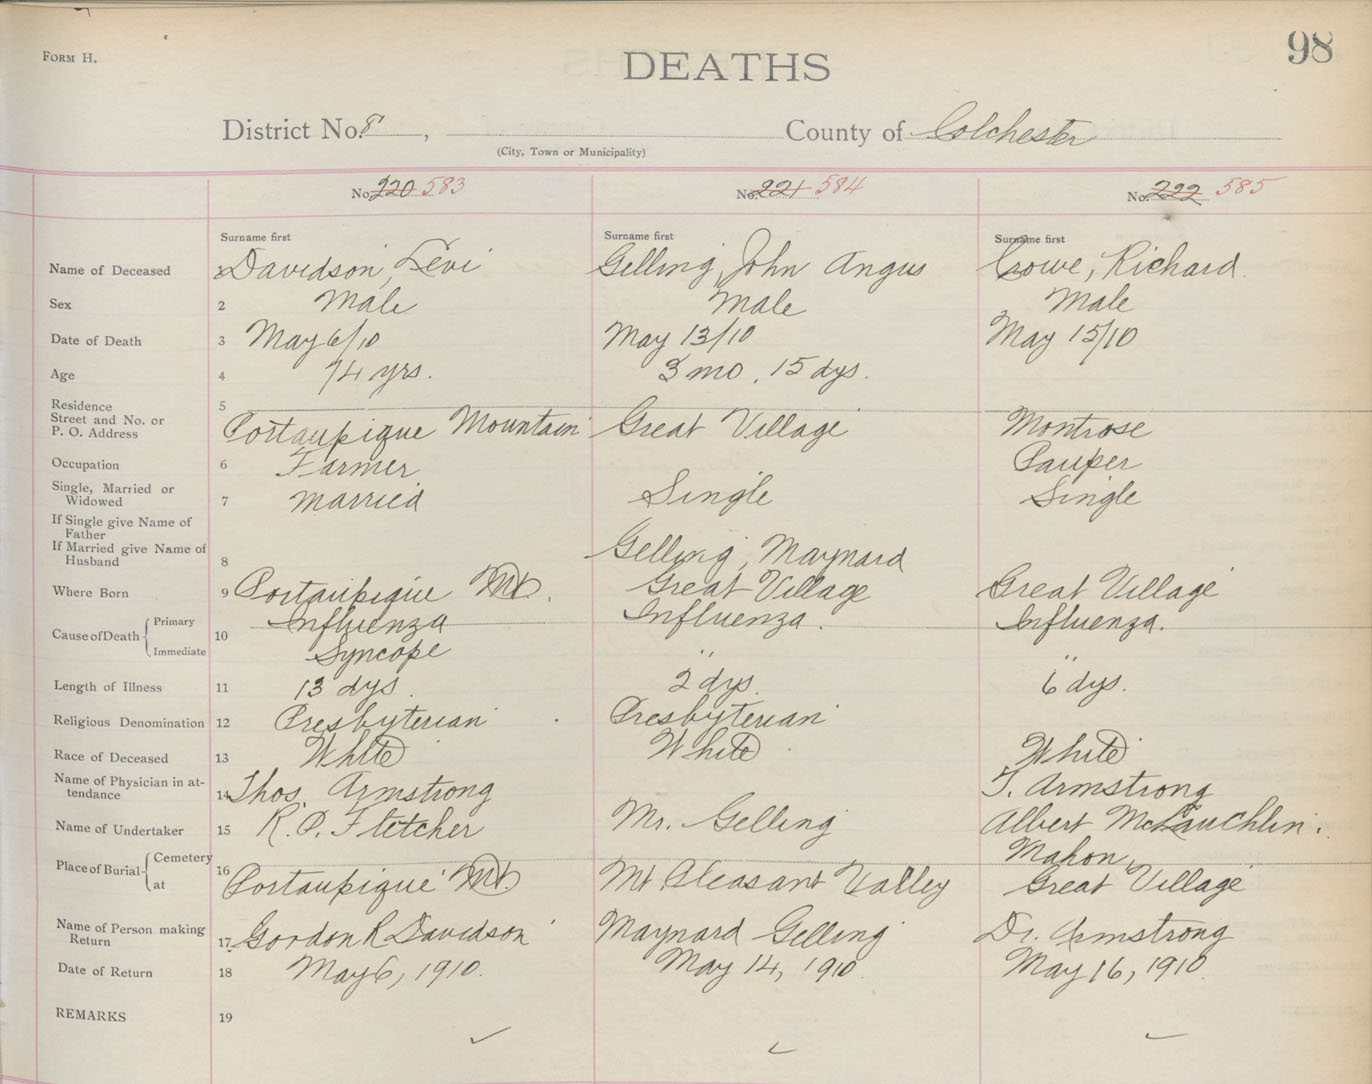 98
FORM H.
DEATHS
District No. 8 , County of Colchester
(City, Town or Municipality)
No. 220 583 No. 221 584 No. 222 585
Surname first Surname first Surname first
Name of Deceased Davidson, Levi Gelling, John Angus Crowe, Richard
Sex 2 Male Male Male
Date of Death 3 May 6/10 May 13/10 May 15/10
Age 4 74 yrs. 3 mo. 15 dys.
Residence 5
Street and No. or
P. O. Address Portaupique Mountain Great Village Montrose
Occupation 6 Farmer Pauper
Single, Married or
Widowed 7 Married Single Single
If Single give Name of
Father
If Married give Name of
Husband 8 Gelling, Maynard
Where Born 9 Portaupique Mt. Great Village Great Village
Cause of Death Primary Influenza Influenza. Influenza.
10
Immediate Syncope " "
Length of Illness 11 13 dys. 2 dys. 6 dys.
Religious Denomination 12 Presbyterian Presbyterian
Race of Deceased 13 White White White
Name of Physician in at-
tendance 14 Thos. Armstrong T. Armstrong
Name of Undertaker 15 R. P. Fletcher Mr. Gelling Albert McLauchlin.
Place of Burial Cemetery 16 Mahon,
at Portaupique Mt. Mt Pleasant Valley Great Village
Name of Person making
Return 17 Gordon R Davidson Maynard Gelling Dr. Armstrong
Date of Return 18 May 6, 1910. May 14, 1910 May 16, 1910
REMARKS 19